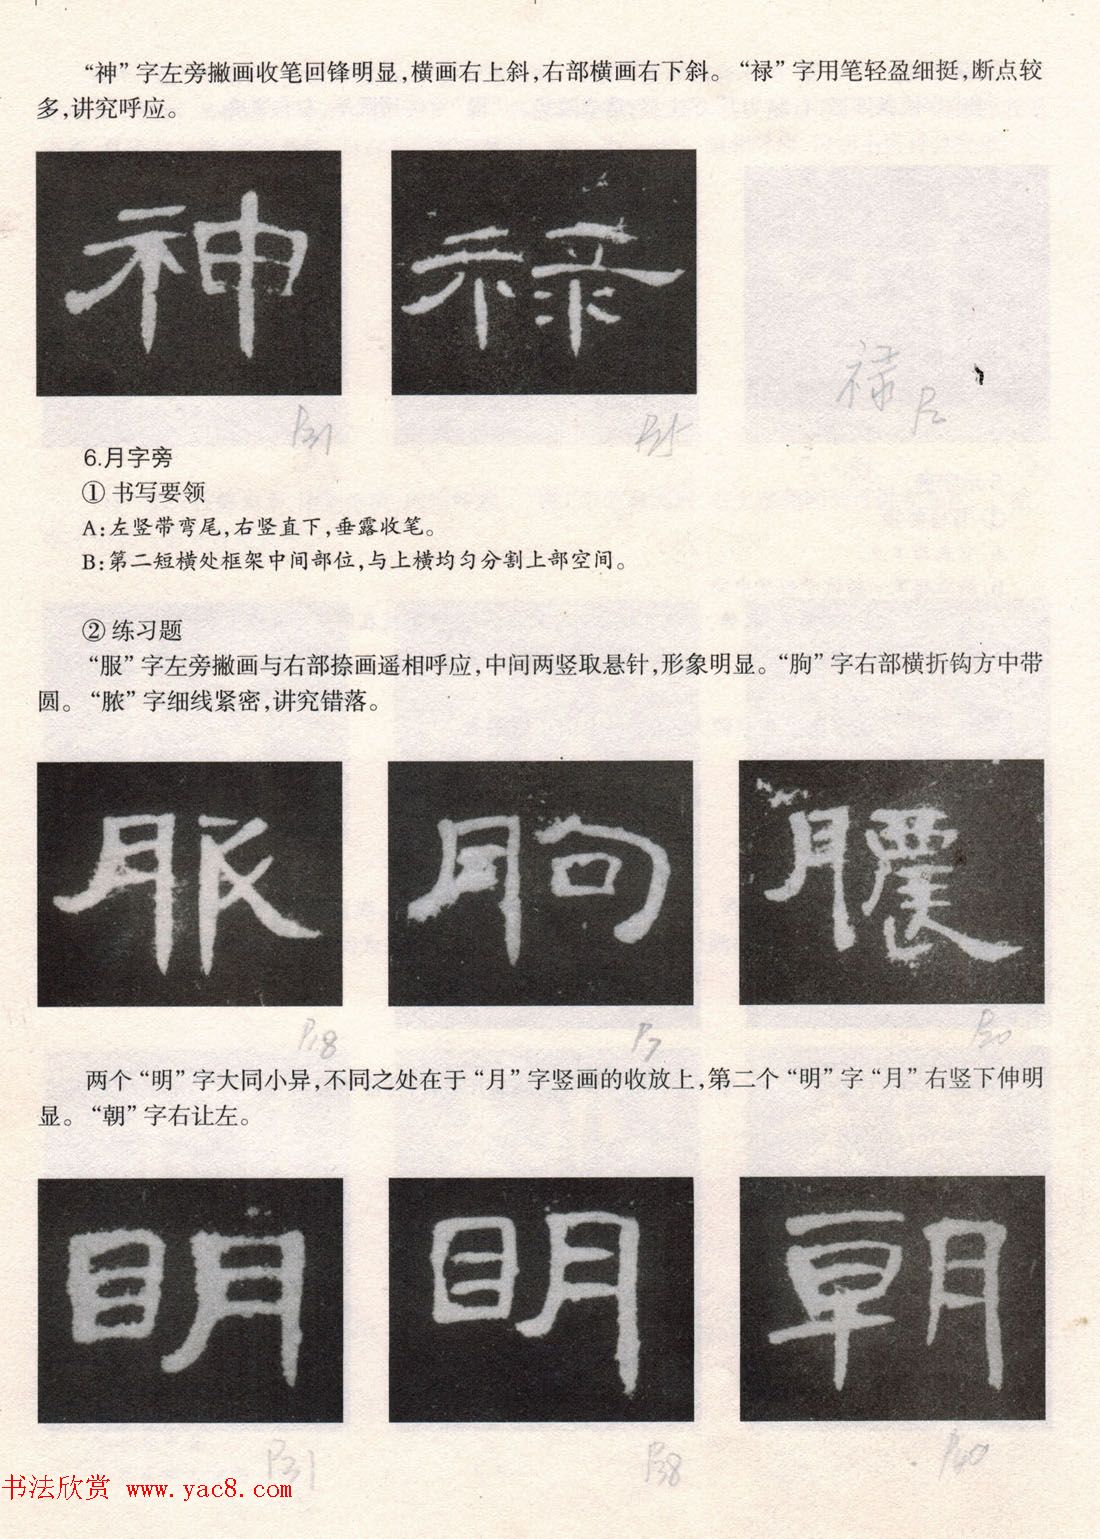 “神”字左旁撇画收笔回锋明显,横画右上斜,右部横画右下斜。“禄”字用笔轻盈细挺,断点较
多,讲究呼应。
神 禄
禄 P2
P31 P35
6.月字旁
① 书写要领
A:左竖带弯尾,右竖直下,垂露收笔。
B:第二短横处框架中间部位,与上横均匀分割上部空间。
② 练习题
“服”字左旁撇画与右部捺画遥相呼应,中间两竖取悬针,形象明显。“朐”字右部横折钩方中带
圆。“脓”字细线紧密,讲究错落。
服 朐 膿
P18 P7 P30
两个“明”字大同小异,不同之处在于“月”字竖画的收放上,第二个“明”字“月”右竖下伸明
显。“朝”字右让左。
明 明 朝
P31 P38 P40
书法欣赏 www.yac8.com